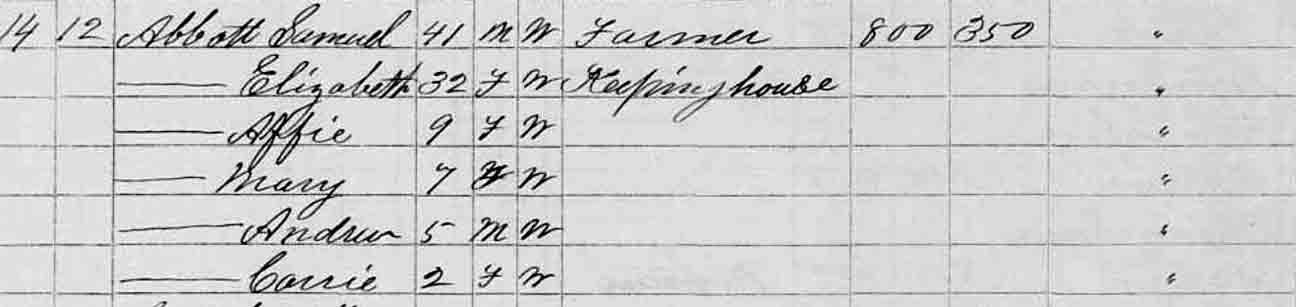 14 12 Abbott Samuel 41 M W Farmer 800 350 "
—— Elizabeth 32 F W Keeping house "
—— Affie 9 F W "
—— Mary 7 F W "
—— Andrew 5 M W "
—— Carrie 2 F W "